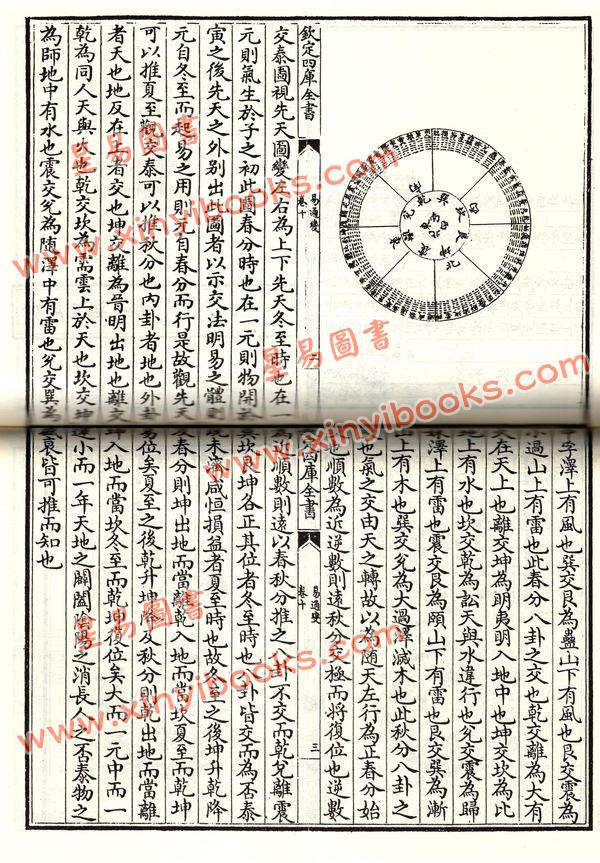 欽定四庫全書
易通變
卷十
二
交泰圖視先天圖變左右為上下先天冬至時也在一
元則氣生於子之初此圖春分時也在一元則物開於
寅之後先天之外别出此圖者以示交法明易之體則
元自冬至而起易之用則元自春分而行是故觀先天
可以推夏至觀交泰可以推秋分也内卦者地也外卦
者天也地反在上者交也坤交離為晉明出地也離交
乾為同人天與火也乾交坎為需雲上於天也坎交坤
為師地中有水也震交兊為随澤中有雷也兊交巽為
孚澤上有風也巽交艮為蠱山下有風也艮交震為
小過山上有雷也此春分八卦之交也乾交離為大有
在天上也離交坤為明夷明入地中也坤交坎為比
上有水也坎交乾為訟天與水違行也兊交震為歸
妹澤上有雷也震交艮為頤山下有雷也艮交巽為漸
上有木也巽交兊為大過澤滅木也此秋分八卦之
也氣之交由天之轉故以為随天左行為正春分始
也順數為近逆數則逺秋分交極而將復位也逆數
四庫全書
易通變
卷十
三
為近順數則逺以春秋分推之八卦不交而乾兊離震
坎艮坤各正其位者冬至時也八卦皆交而為否泰
既未濟咸恒損益者夏至時也故冬至之後坤升乾降
及春分則坤出地而當離乾入地而當坎夏至而乾坤
易位矣夏至之後乾升坤降及秋分則乾出地而當離
坤入地而當坎冬至而乾坤復位矣大而一元中而一
運小而一年天地之闢闔隂陽之消長人之否泰物之
衰皆可推而知也
星易圖書
www.xinyibooks.com
星易圖書
www.xinyibooks.com
星易圖書
www.xinyibooks.com